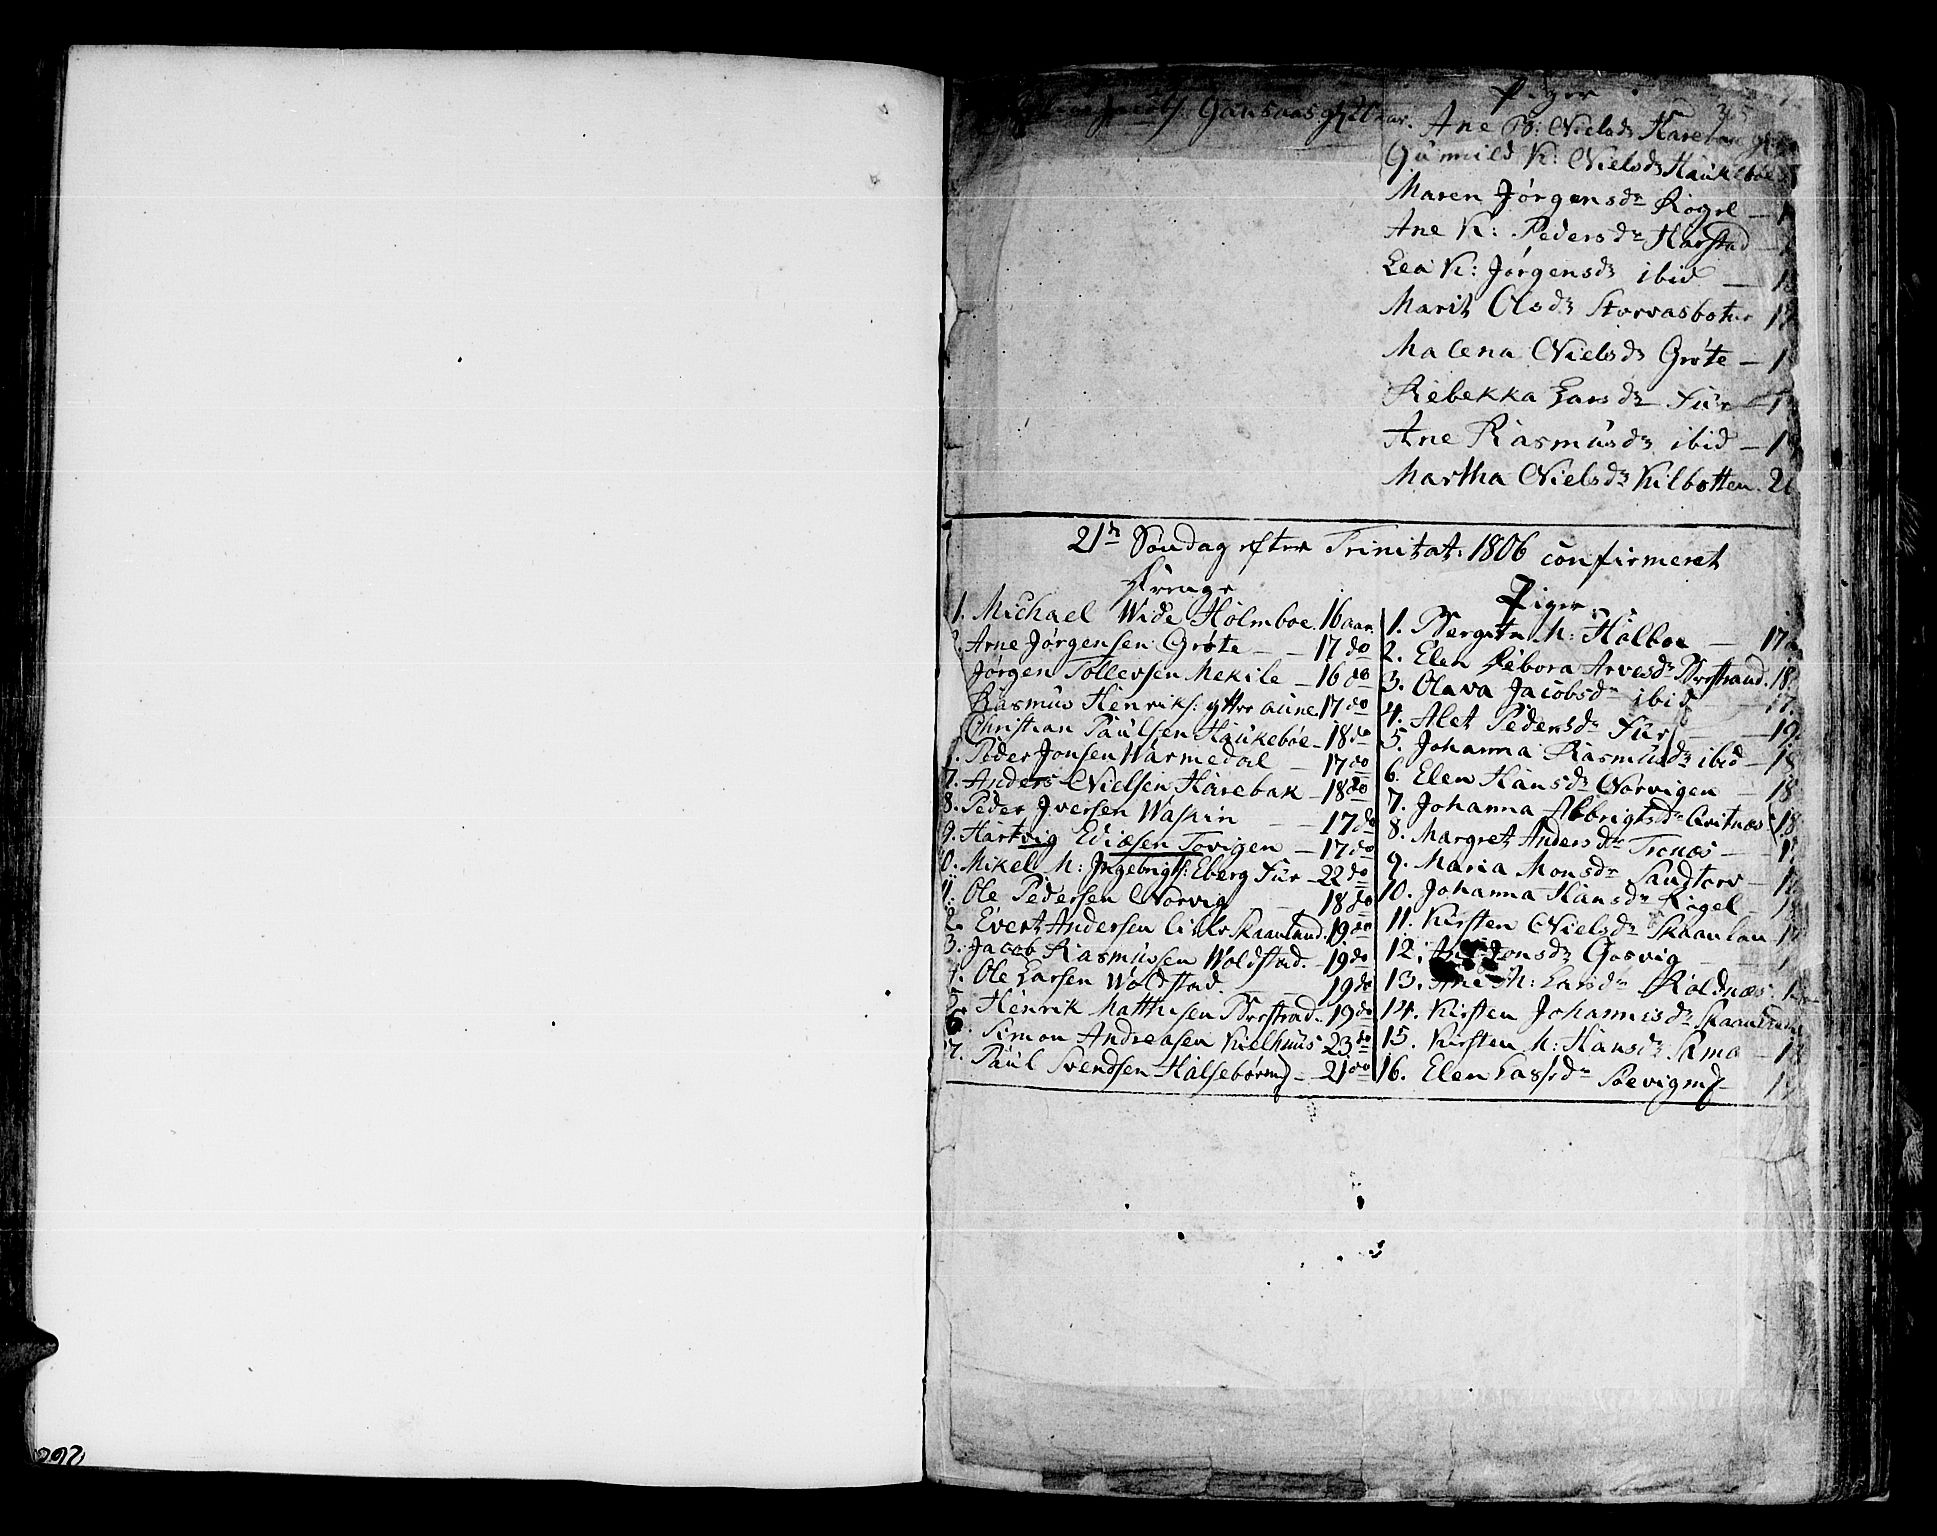 Gansaas
Piger
35
Ane B: Nielsdr Harebak
Gunnild K: Nielsdr Haukeboe
Maren Jørgensdr Rogel —
Ane K: Pedersdr Harstad —
Lea K: Jørgensdr ibid —
Marit Olsdr Storvasbotn
Malena Nielsdr Grøte —
Rebekka Larsdr Fur —
Ane Rasmusdr ibid —
Martha Nielsdr Kilbotten.
21de Søndag efter Trinitat: 1806 confirmeret
Drenge
1. Michael Wide Holmboe. 16 aar.
Arne Jørgensen Grøte — 17 do
Jørgen Tollevsen Mekile — 16 do
Rasmus Henriks: yttre aune 17 do
Christian Paulsen Haukebøe — 18 do
Peder Jonsen Warmedal — 17 do
7. Anders Nielsen Harebak — 18 do
8. Peder Iversen Waskin — 17 do
9. Hartvig Ediæsen Tovigen — 17 do
0. Mikel M: Ingebrigts: Eberg Fur — 22 do
11. Ole Pedersen Norvig — 18 do
2. Evert Andersen Lille Skaanland. 19 do
3. Jacob Rasmussen Woldstad. — 19 do
4. Ole Larsen Woldstad. — 19 do
5. Henrik Mathisen Børstrad. 19 do
6. Simon Andreasen Kielhuus 23 do
7. Paul Svendsen Halsebørind — 21 do
Piger
1. Bergitta M: Holboe — 17
2. Elen Debora Arvesdr Børstrand. 18
3. Olava Jacobsdr ibid — 17.
4. Alet Pedersdr Fur — 19
5. Johanna Rasmusdr ibid — 18
6. Elen Hansdr Norvigen — 18
7. Johanna Albrigtsdr Qvitnæs 18
8. Margret Andersdr Tronæs —
9. Maria Monsdr Sandtorv —
10. Johanna Hansdr Rogel —
11. Kirsten Nielsdr Skaanlan
12. Jonsdr Gosvig —
13. Ane M: Larsdr Roldnæs
14. Kirsten Johannisdr Skaanland
15. Kirsten M: Hansdr Sama —
16. Elen Lassesdr Søevigmf —